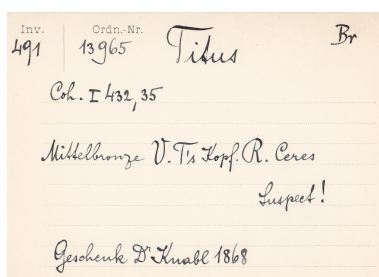 Inv. Ordn.-Nr. Titus Br
491 13965
Coh. I 432,35
Mittelbronze V. T's Kopf. R. Ceres
Suspect!
Geschenk Dr Knabl 1868